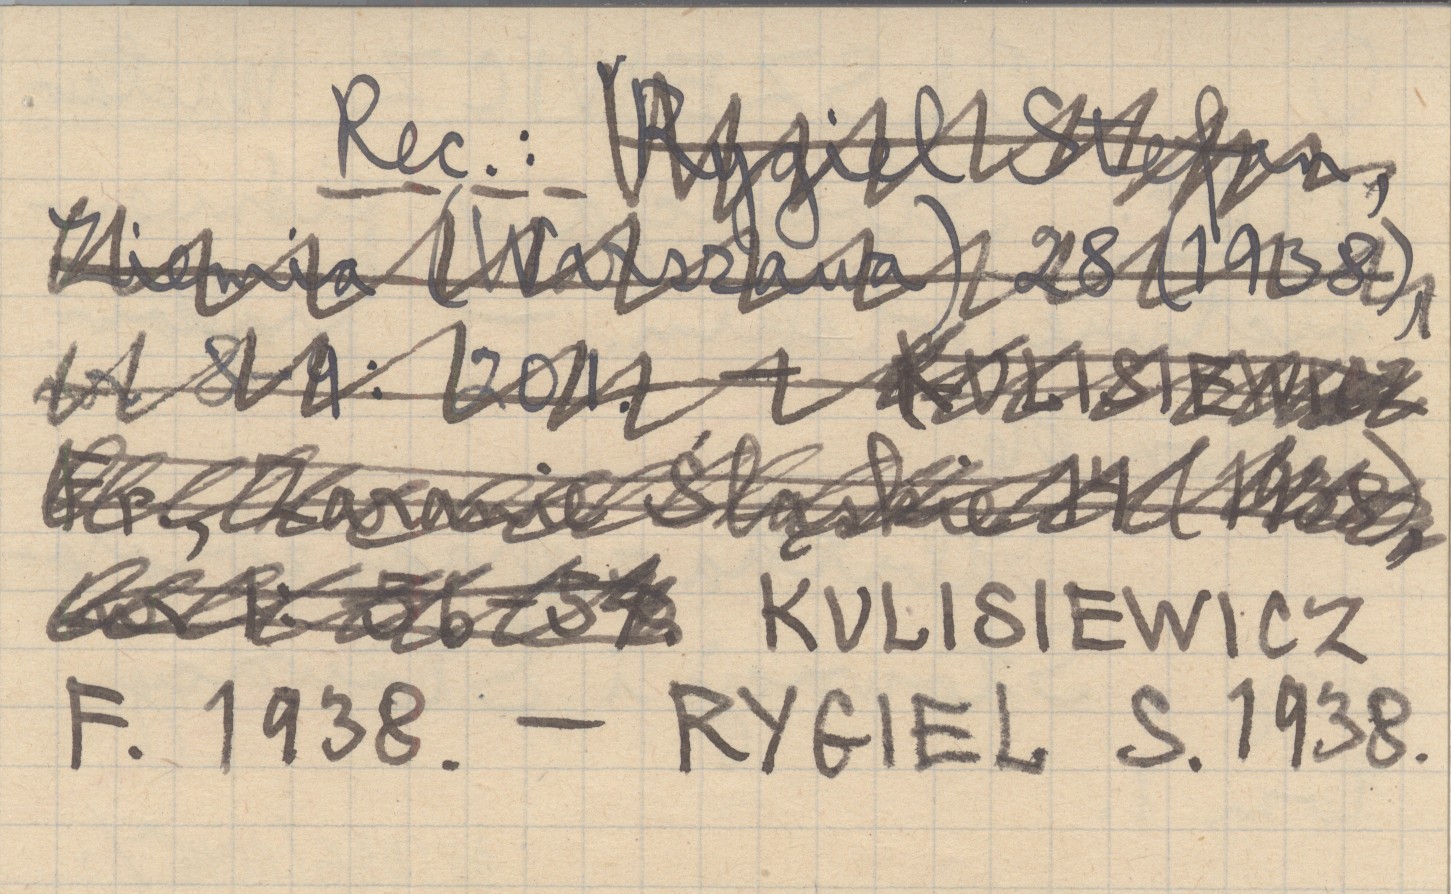 Rec.: Rygiel Stefan,
Ziemia (Warszawa) 28 (1938),
8-9: 201. — KULISIEWICZ
Fr., Zaranie Śląskie 14 (1938),
1: 56-57. KULISIEWICZ
F. 1938. — RYGIEL S. 1938.